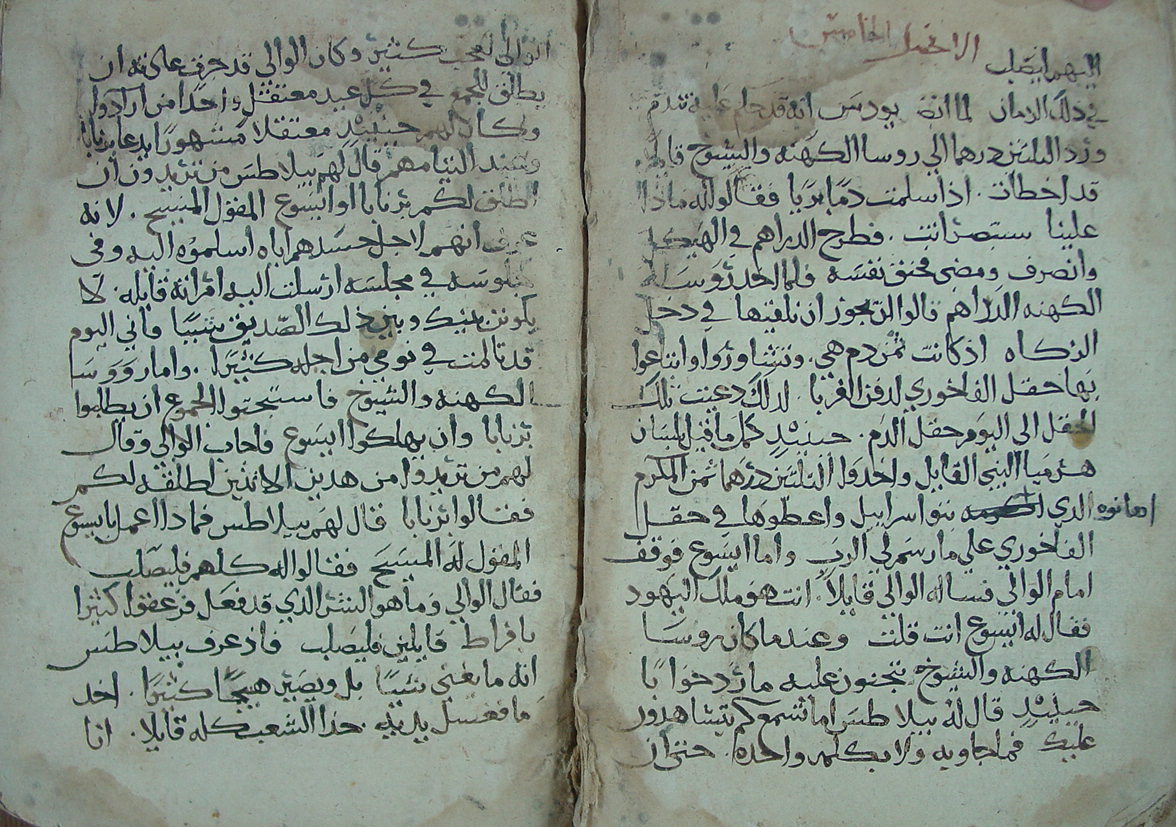 اليهم ليصلب الانجيل الخامس
في ذلك الزمان لما راى يودس انه قد حكم عليه تندم
ورد الثلثين درهما الى روسا الكهنه والشيوخ قايلا
قد اخطات اذ اسلمت دما بريا فقالوا له ماذا
علينا ستبصر انت فطرح الدراهم في الهيكل
وانصرف ومضى فخنق نفسه فلما اخذ روسا
الكهنه الدراهم قالوا لن يجوز ان نلقيها في دخل
الزكاه اذ كانت ثمن دم هي وتشاوروا وابتاعوا
بها حقل الفاخوري لدفن الغربا لذلك دعيت تلك
الحقل الى اليوم حقل الدم حينيذ كمل ما قيل بلسان
هرميا النبي القايل واخذوا الثلثين درهما ثمن المكرم
الذي اكرموه بنوا اسراييل واعطوها في حقل
الفاخوري على ما رسم لي الرب واما ايسوع فوقف
امام الوالي فساله الوالي قايلا انت هو ملك اليهود
فقال له ايسوع انت قلت وعندما كان روسا
الكهنه والشيوخ يتجنون عليه ما رد جوابا
حينيذ قال له بيلاطس اما تسمع كم يتشاهدون
عليك فما جاوبه ولا بكلمه واحده حتى ان
الوالي تعجب كثيرا وكان الوالي قد جرت عادته ان
يطلق للجمع في كل عيد معتقلا واحدا من ارادوا
وكان لهم حينيذ معتقلا مشهورا يدعا برنابا
وعند التيامهم قال لهم بيلاطس من تريدون ان
اطلق لكم برنابا او ايسوع المقول المسيح لانه
عرف انهم لاجل حسدهم اياه اسلموه اليه وفي
جلوسه في مجلسه ارسلت اليه امراته قايله لا
يكونن بينك وبين ذلك الصديق شييا فاني اليوم
قد تالمت في نومي من اجله كثيرا واما روسا
الكهنه والشيوخ فاستحثوا الجموع ان يطلبوا
برنابا وان يهلكوا ايسوع فاجاب الوالي وقال
لهم من تريدوا من هذين الاثنين اطلقه لكم
فقالوا برنابا قال لهم بيلاطس فماذا اعمل بايسوع
المقول له المسيح فقالوا له كلهم فليصلب
فقال الوالي وما هو الشر الذي قد فعل فزعقوا كثيرا
بافراط قايلين فليصلب فاذ عرف بيلاطس
انه ما يغني شييا بل ويصير هيجا كثيرا اخذ
ما فغسل يديه حذا الشعب كله قايلا انا